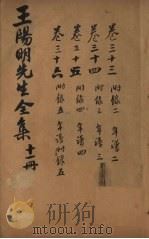 卷三十三 附錄二 年譜二
卷三十四 附錄三 年譜三
卷三十五 附錄四 年譜四
卷三十六 附錄五 年譜附錄五
王陽明先生全集 十二冊